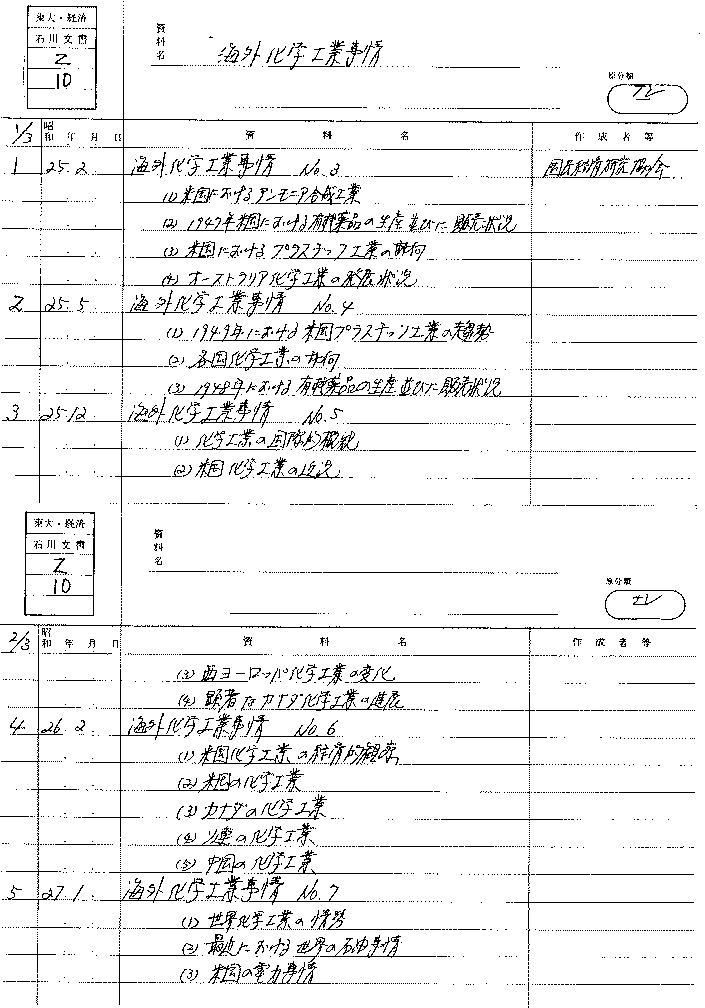 東大・経済
石川文書
Z
10
資料名
海外化学工業事情
原分類
1/3 昭和 年 月 日 資料名 作成者等
1 25.2. 海外化学工業事情 No.3 国民経済研究協会
(1) 米国におけるアンモニア合成工業
(2) 1947年米国における有機薬品の生産並びに販売状況
(3) 米国におけるプラスチック工業の動向
(4) オーストラリア化学工業の発展状況
2 25.5. 海外化学工業事情 No.4
(1) 1949年における米国プラスチック工業の趨勢
(2) 各国化学工業の動向
(3) 1948年における有機薬品の生産並びに販売状況
3 25.12. 海外化学工業事情 No.5
(1) 化学工業の国際的概観
(2) 米国化学工業の近況
東大・経済
石川文書
Z
10
資料名
原分類
2/3 昭和 年 月 日 資料名 作成者等
(3) 西ヨーロッパ化学工業の変化
(4) 顕著なカナダ化学工業の進展
4 26.2. 海外化学工業事情 No.6
(1) 米国化学工業の経済的観察
(2) 米国の化学工業
(3) カナダの化学工業
(4) ソ連の化学工業
(5) 中国の化学工業
5 27.1. 海外化学工業事情 No.7
(1) 世界化学工業の情勢
(2) 最近における世界の石油事情
(3) 米国の電力事情